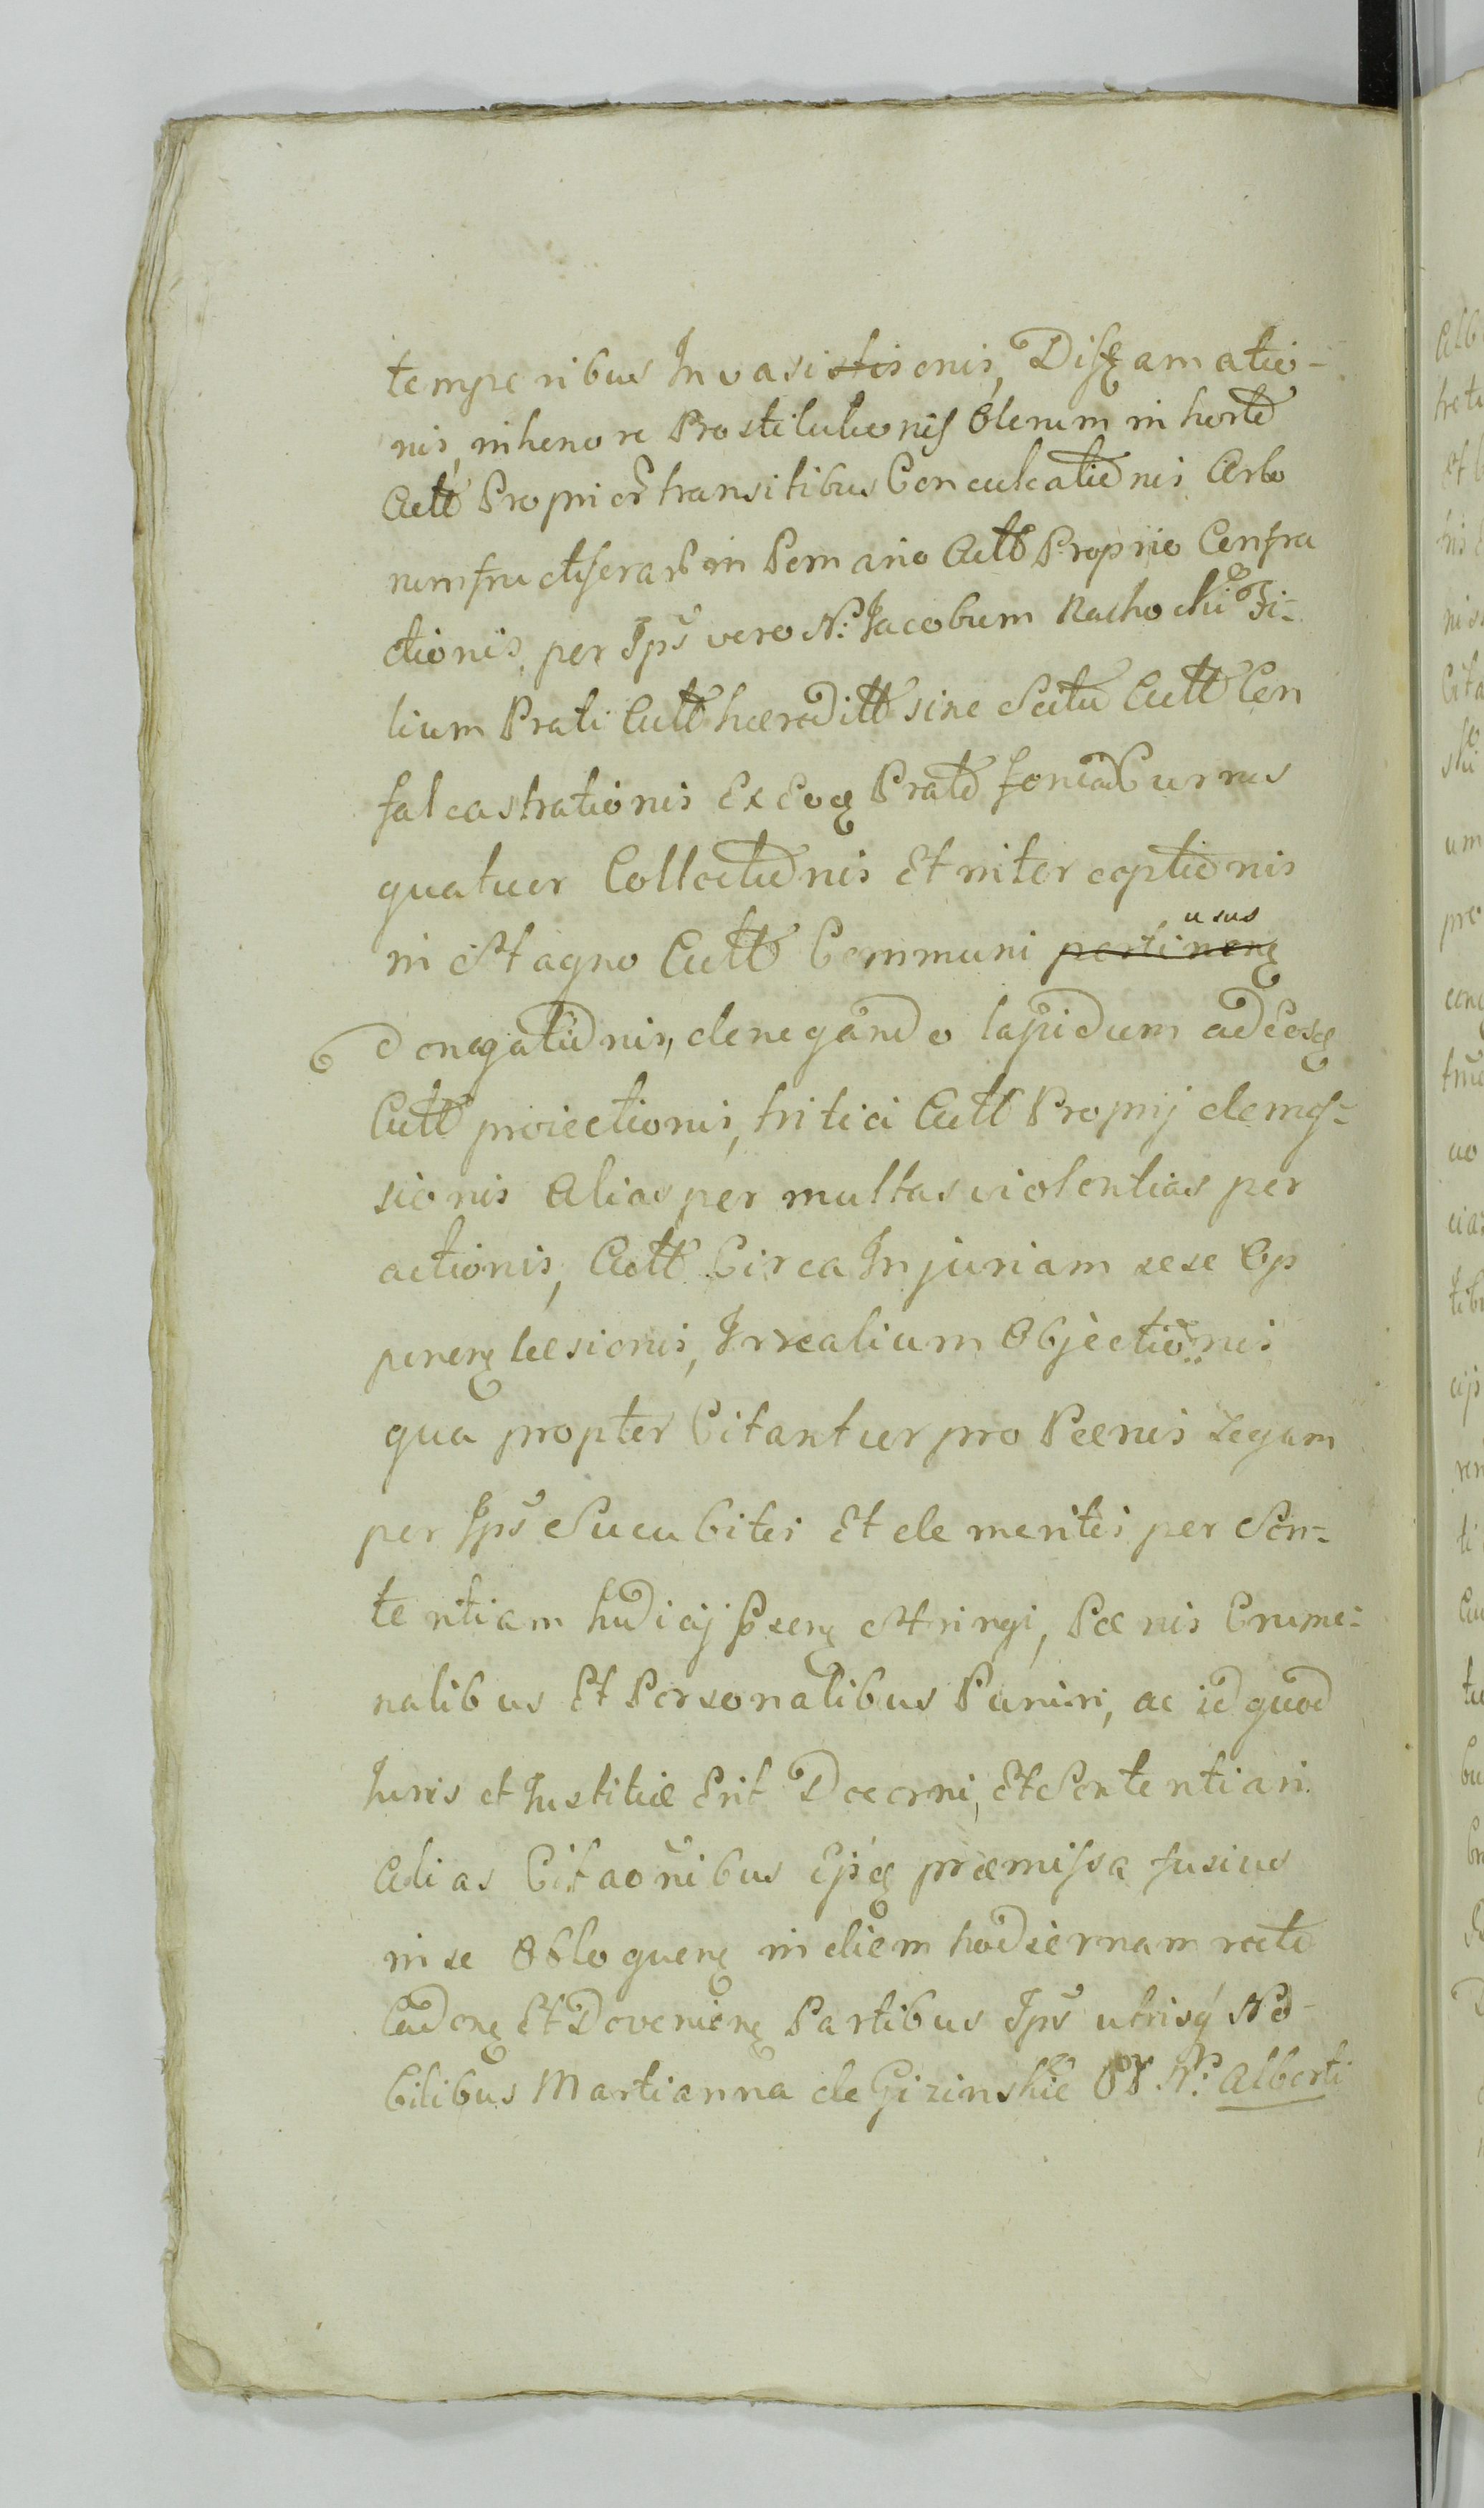 temporibus Invasistisonis, Diffamatio-
nis, inhonore Prostitutionis Olerum in horto
Actt Proprior transitibus Conculcationis Arbo
rum fructiferar in Pomario Actt Proprio Confra
ctionis, per Ips vero N: Jacobum Fi-
lium Prati Actt hæreditt sine Scitu Actt Con
falcastrationis Ex Eoq Prato Currus
quatuor Collectionis Et interceptionis
in Stagno Actt Communi usus
pertineng
denegationis, denegando lapidum ad Eosq
Actt proiectionis, tritici Actt Proprij demes-
sionis Alias per multas violentias per
actionis, Actt Circa Injuriam sese Op
ponen læsionis, Irrealium Objectionis
qua propter Citantur pro Pœnis Legum
per Ips Sucubitis Et demeritis per Sen-
tentiam Iudicij Psen Stringi, Pœnis Crimi-
nalibus Et Personalibus Puniri, ac id quod
Iuris et Iustitiæ Erit Decerni, Et Sententiari
Alias Citaonibus Ejsq præmissa fusius
in se Obloquen in diem hodiernam recte
Caden Et Devenien Partibus Ips utrisq No-
bilibus Martianna de Gizinskie N: Alberti